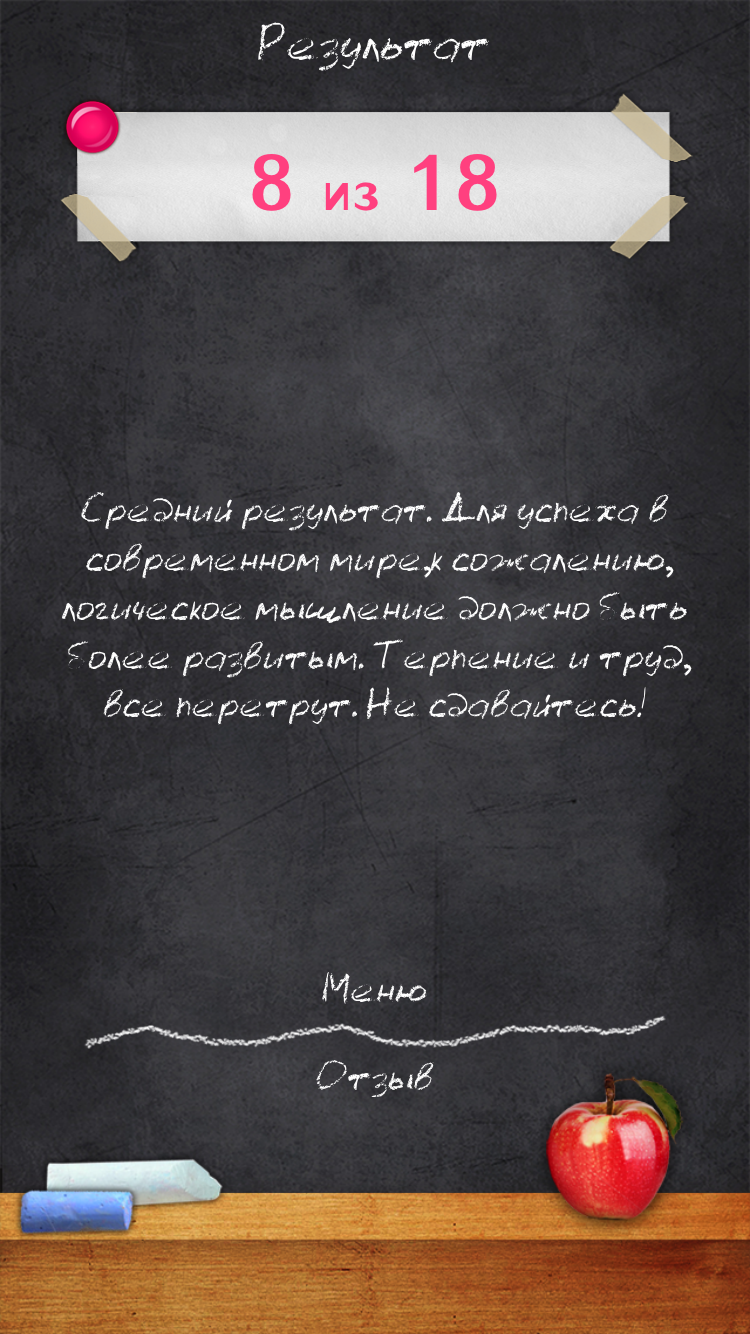 Результат
8 из 18
Средний результат. Для успеха в
современном мире,к сожалению,
логическое мышление должно быть
более развитым. Терпение и труд,
все перетрут. Не сдавайтесь!
Меню
Отзыв